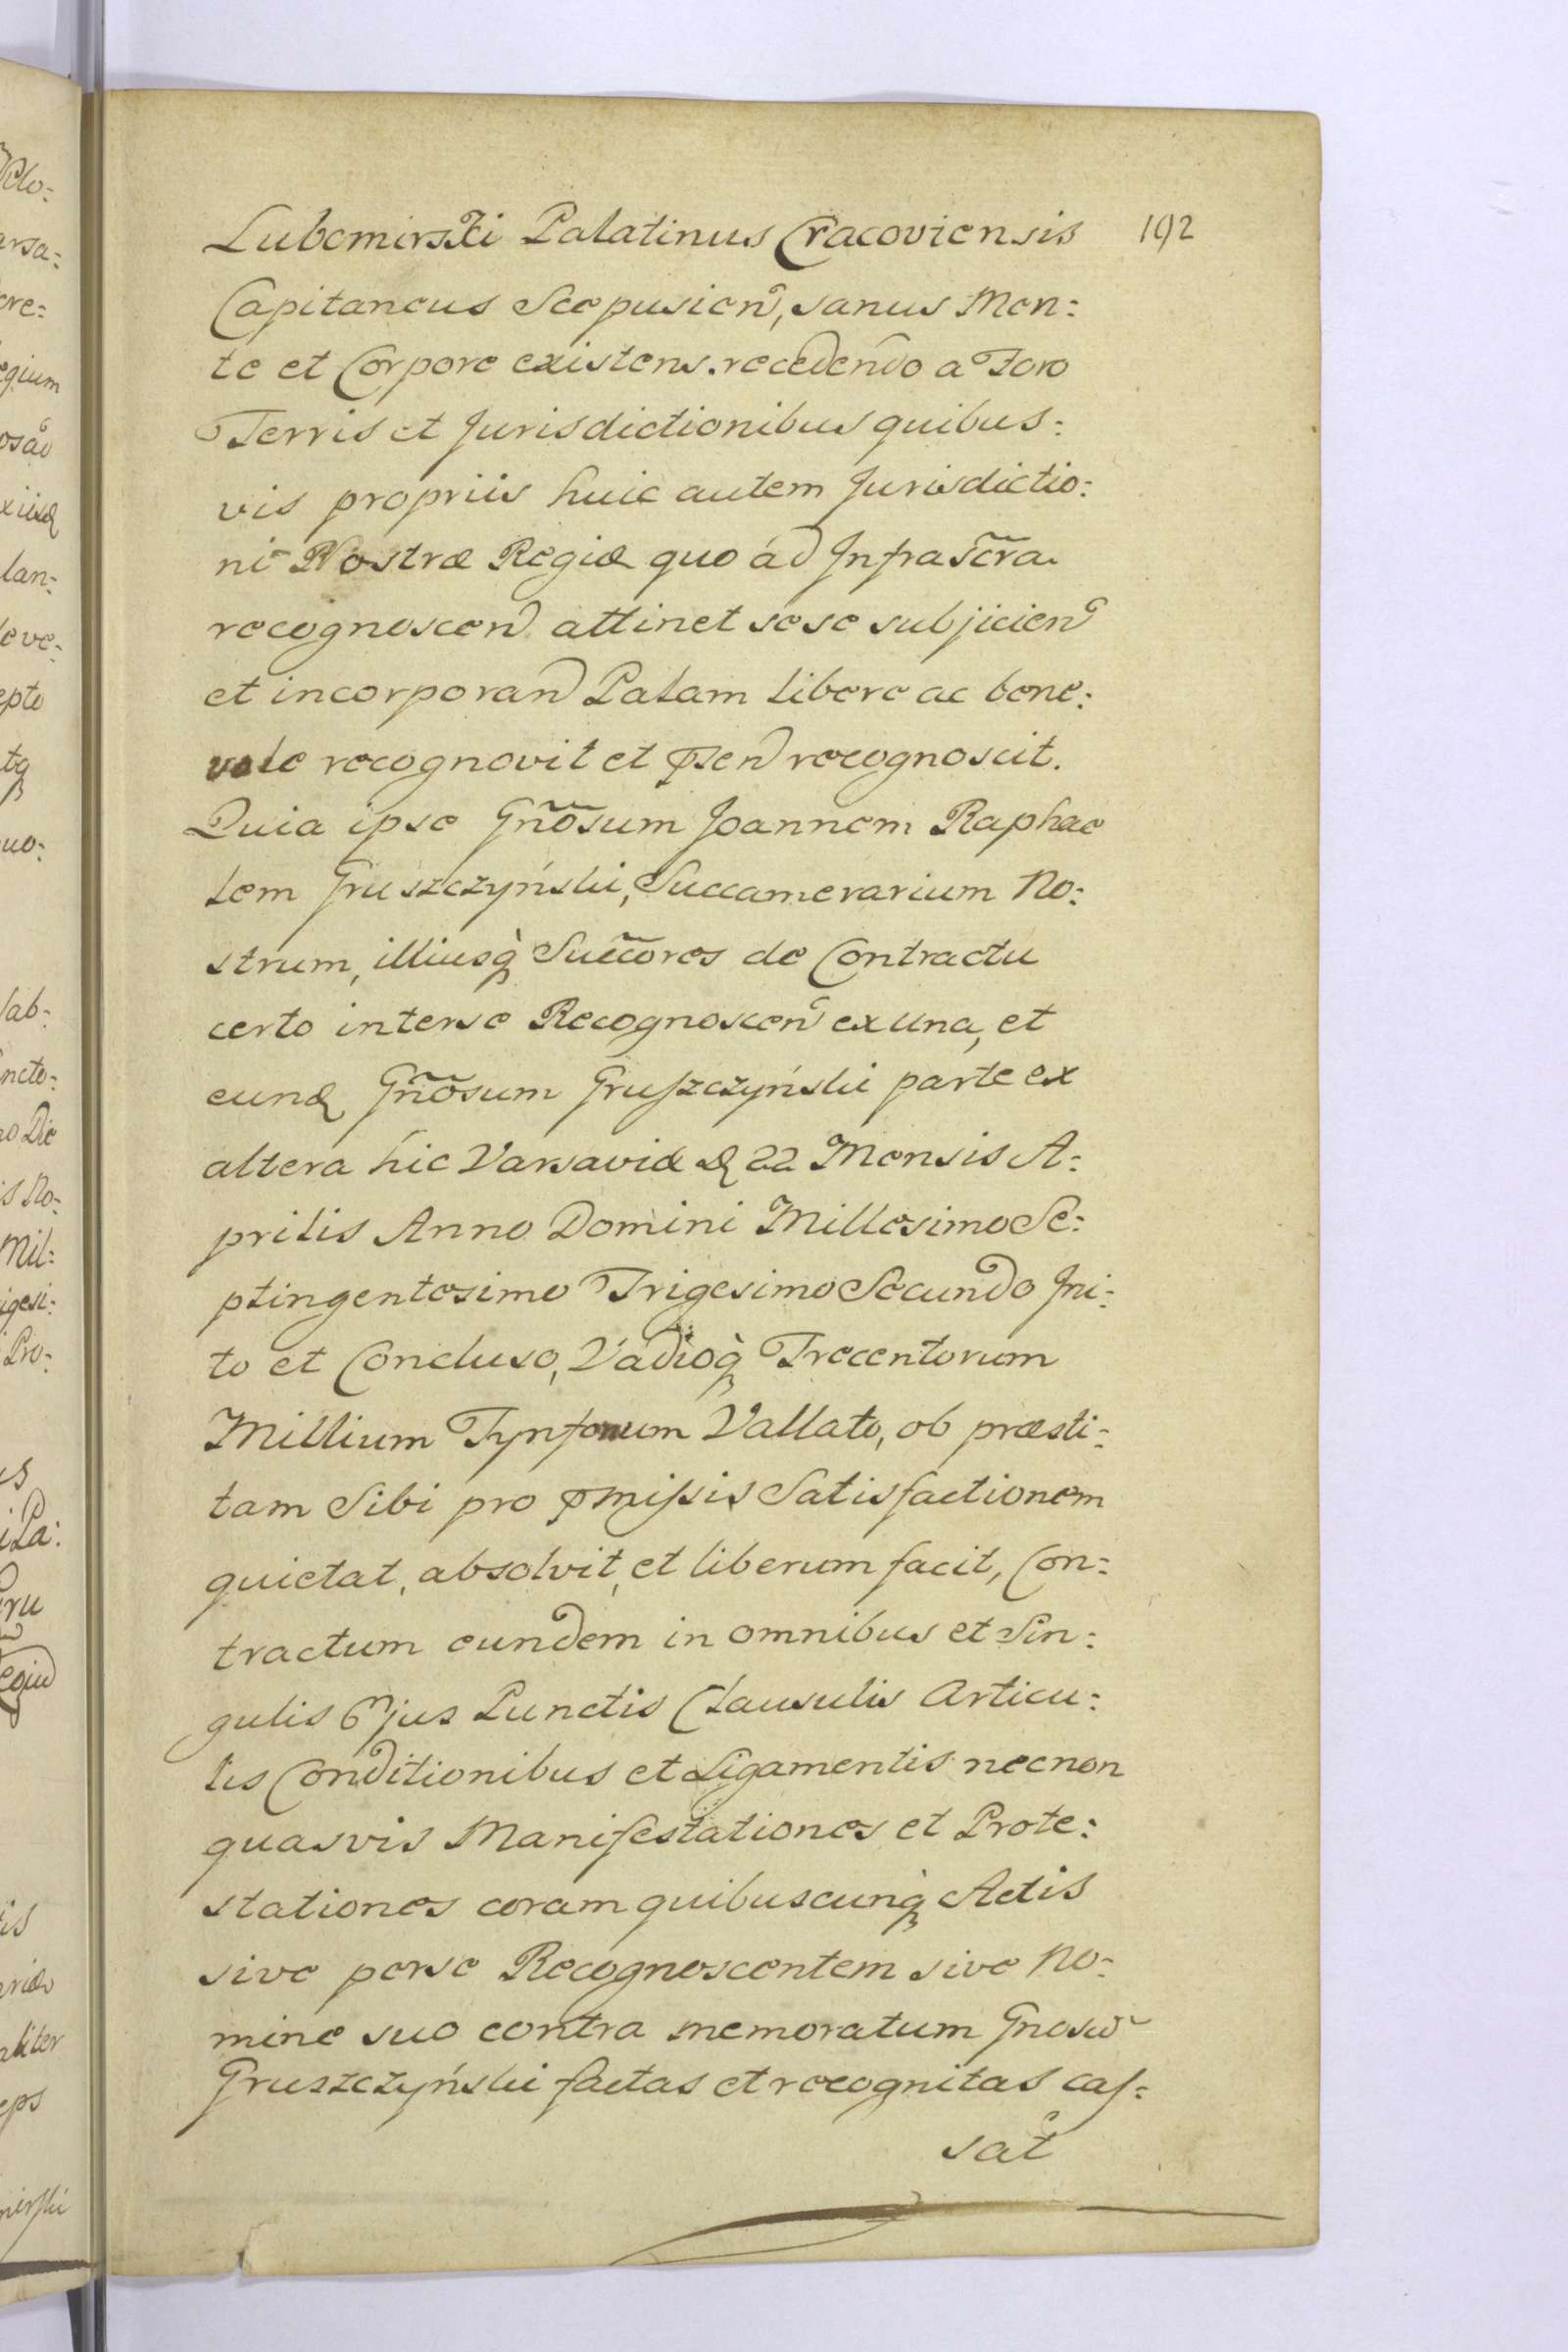 192
Lubomirski Palatinus Cracoviensis
Capitaneus Scepusien̄, sanus Men:
te et Corpore existens. recedendo a Foro
Terris et Jurisdictionibus quibus:
vis propriis huic autem Jurisdictio:
ni Nostræ Regiæ quo ad Infrascr̃a
recognoscen̄ attinet sese subjicien̄
et incorporan̄ Palam libere ac bene:
vole recognovit et p̄sen̄ recognoscit.
Quia ipse Gñõsum Joannem Raphae
lem Gruszczyński, Succamerarium No:
strum, illiusq̀ Succ̃ores de Contractu
certo interse Recognoscen̄ ex una, et
eund Gñõsum Gruszczyński parte ex
altera hic Varsaviæ d 22 Mensis A:
prilis Anno Domini Millesimo Se:
ptingentesimo Trigesimo Secundo Ini:
to et Concluso, Vadioq̀ Trecentorum
Millium Tynforum Vallato, ob præsti:
tam Sibi pro p̄missis Satisfactionem
quietat, absolvit, et liberum facit, Con:
tractum eundem in omnibus et Sin:
gulis Ejus Punctis Clausulis Articu:
lis Conditionibus et Ligamentis necnon
quasvis Manifestationes et Prote:
stationes coram quibuscunq̀ Actis
sive perse Recognoscentem sive No:
mine suo contra memoratum Gnosũ
Gruszczyński factas et recognitas cas:
sat